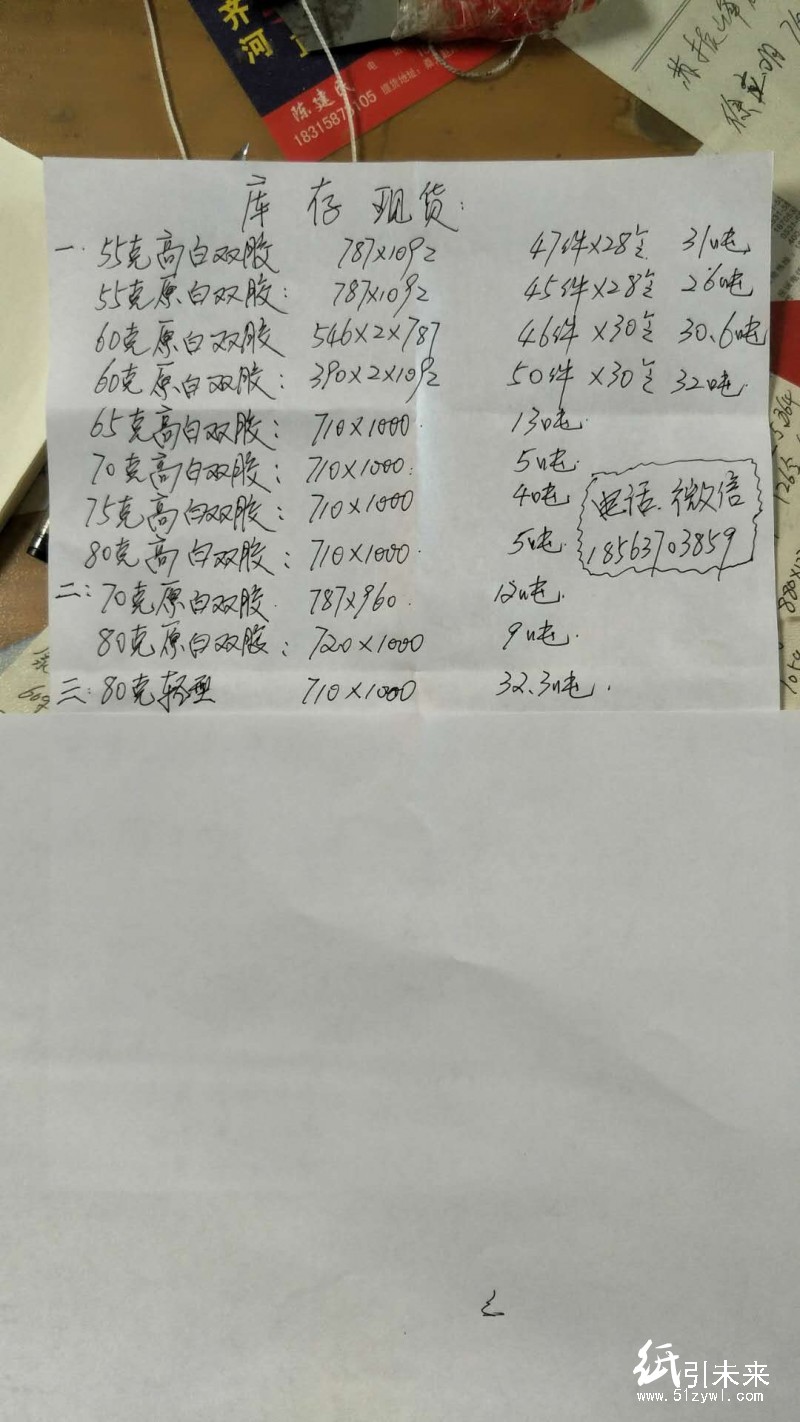 齐河
陈建
电
提货地址：
库存现货：
一．55克高白双胶 787×1092 47件×28令 31吨
55克原白双胶： 787×1092 45件×28令 26吨
60克原白双胶 546×2×787 46件×30令 30.6吨
60克原白双胶： 390×2×1092 50件×30令 32吨
65克高白双胶： 710×1000． 13吨．
70克高白双胶： 710×1000． 5吨．
75克高白双胶： 710×1000 4吨
80克高白双胶： 710×1000． 5吨．
电话．微信
18563703859
二：70克原白双胶． 787×960． 12吨．
80克原白双胶： 720×1000 9吨．
三：80克轻型 710×1000 32.3吨．
纸引未来
www.51zywl.com